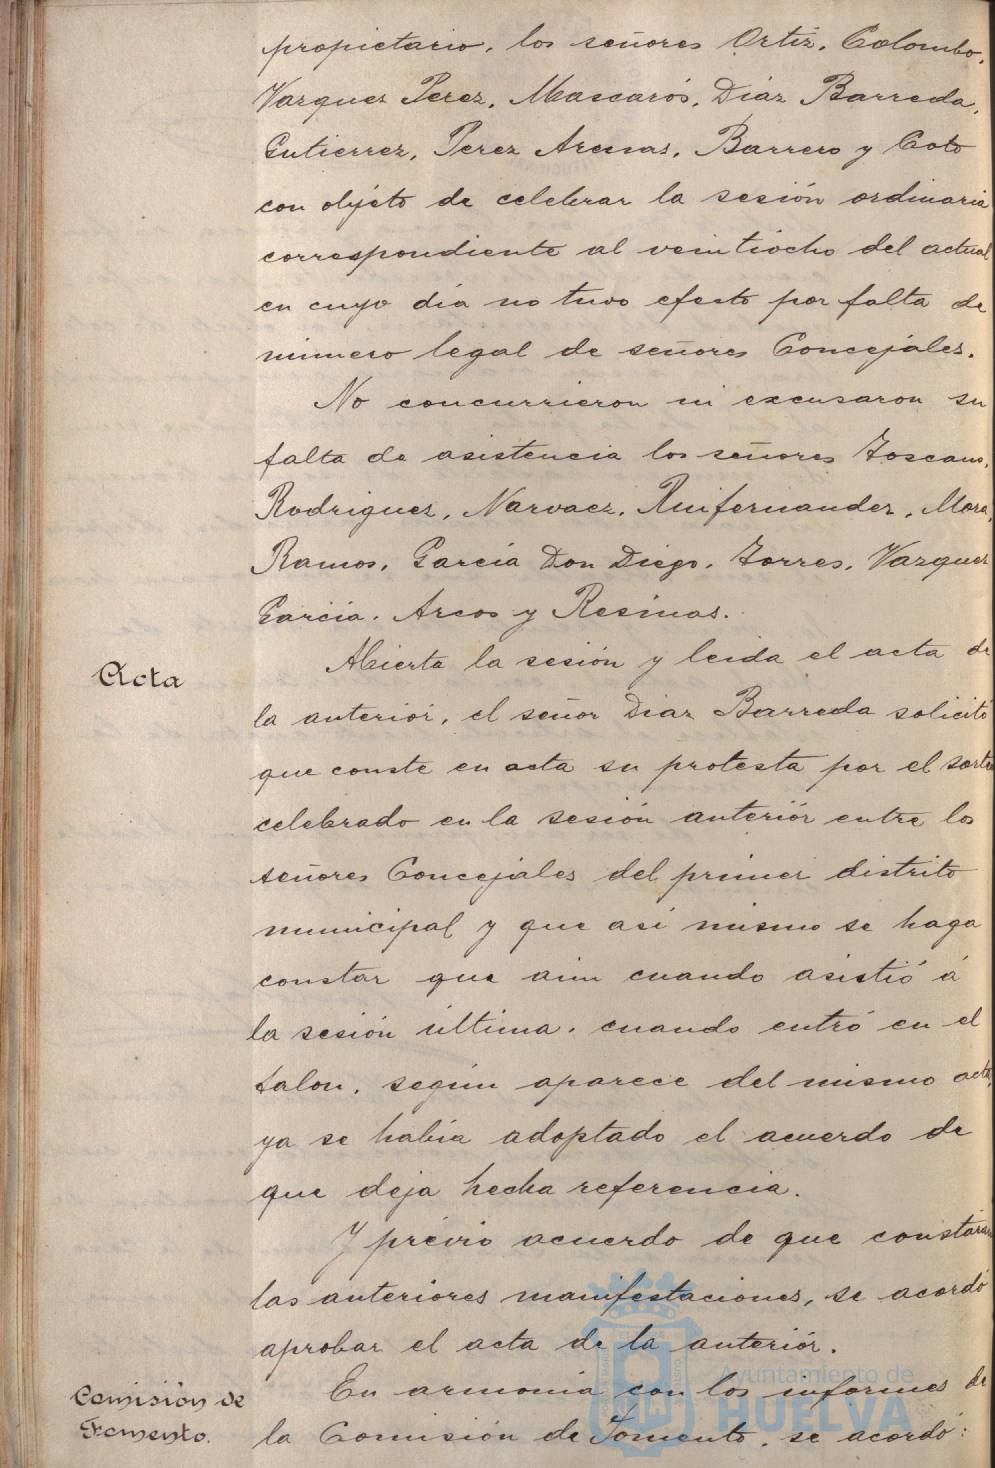 propietario, los señores Ortiz, Colombo,
Vazquez Perez, Mascarós, Diáz Barreda,
Gutierrez, Perez Arenas, Barrero y Coto
con objéto de celebrar la sesión ordinaria
correspondiente al veintiocho del actual
en cuyo dia no tuvo efecto por falta de
número legal de señores Concejáles.
No concurrieron ni excusaron su
falta de asistencia los señores Toscano,
Rodriguez, Narvaez, Ruifernandez, Mora,
Ramos, García Don Diego, Torres, Vazquez
García, Arcos y Resinas.
Acta
Abierta la sesión y leida el acta de
la anteriór, el señor Diaz Barreda solicitó
que conste en acta su protesta por el sorteo
celebrado en la sesión anteriór entre los
señores Concejáles del primer distrito
municipal y que asi mismo se haga
constar que aún cuando asistió á
la sesión última, cuando entró en el
salon, según aparece del mismo acta,
ya se había adoptado el acuerdo de
que deja hecha referencia.
Y prévio acuerdo de que constáran
las anteriores manifestaciones, se acordó
aprobar el acta de la anteriór.
Comisión de
Fomento.
En armonia con los informes de
la Comisión de Fomento, se acordó:
Ayuntamiento de
HUELVA